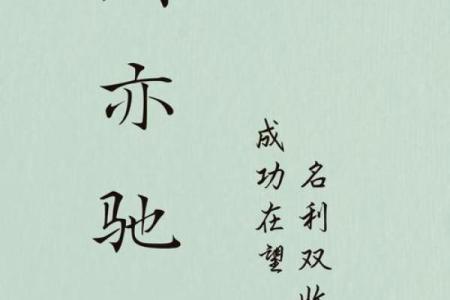 亦驰
成功在望
名利双收